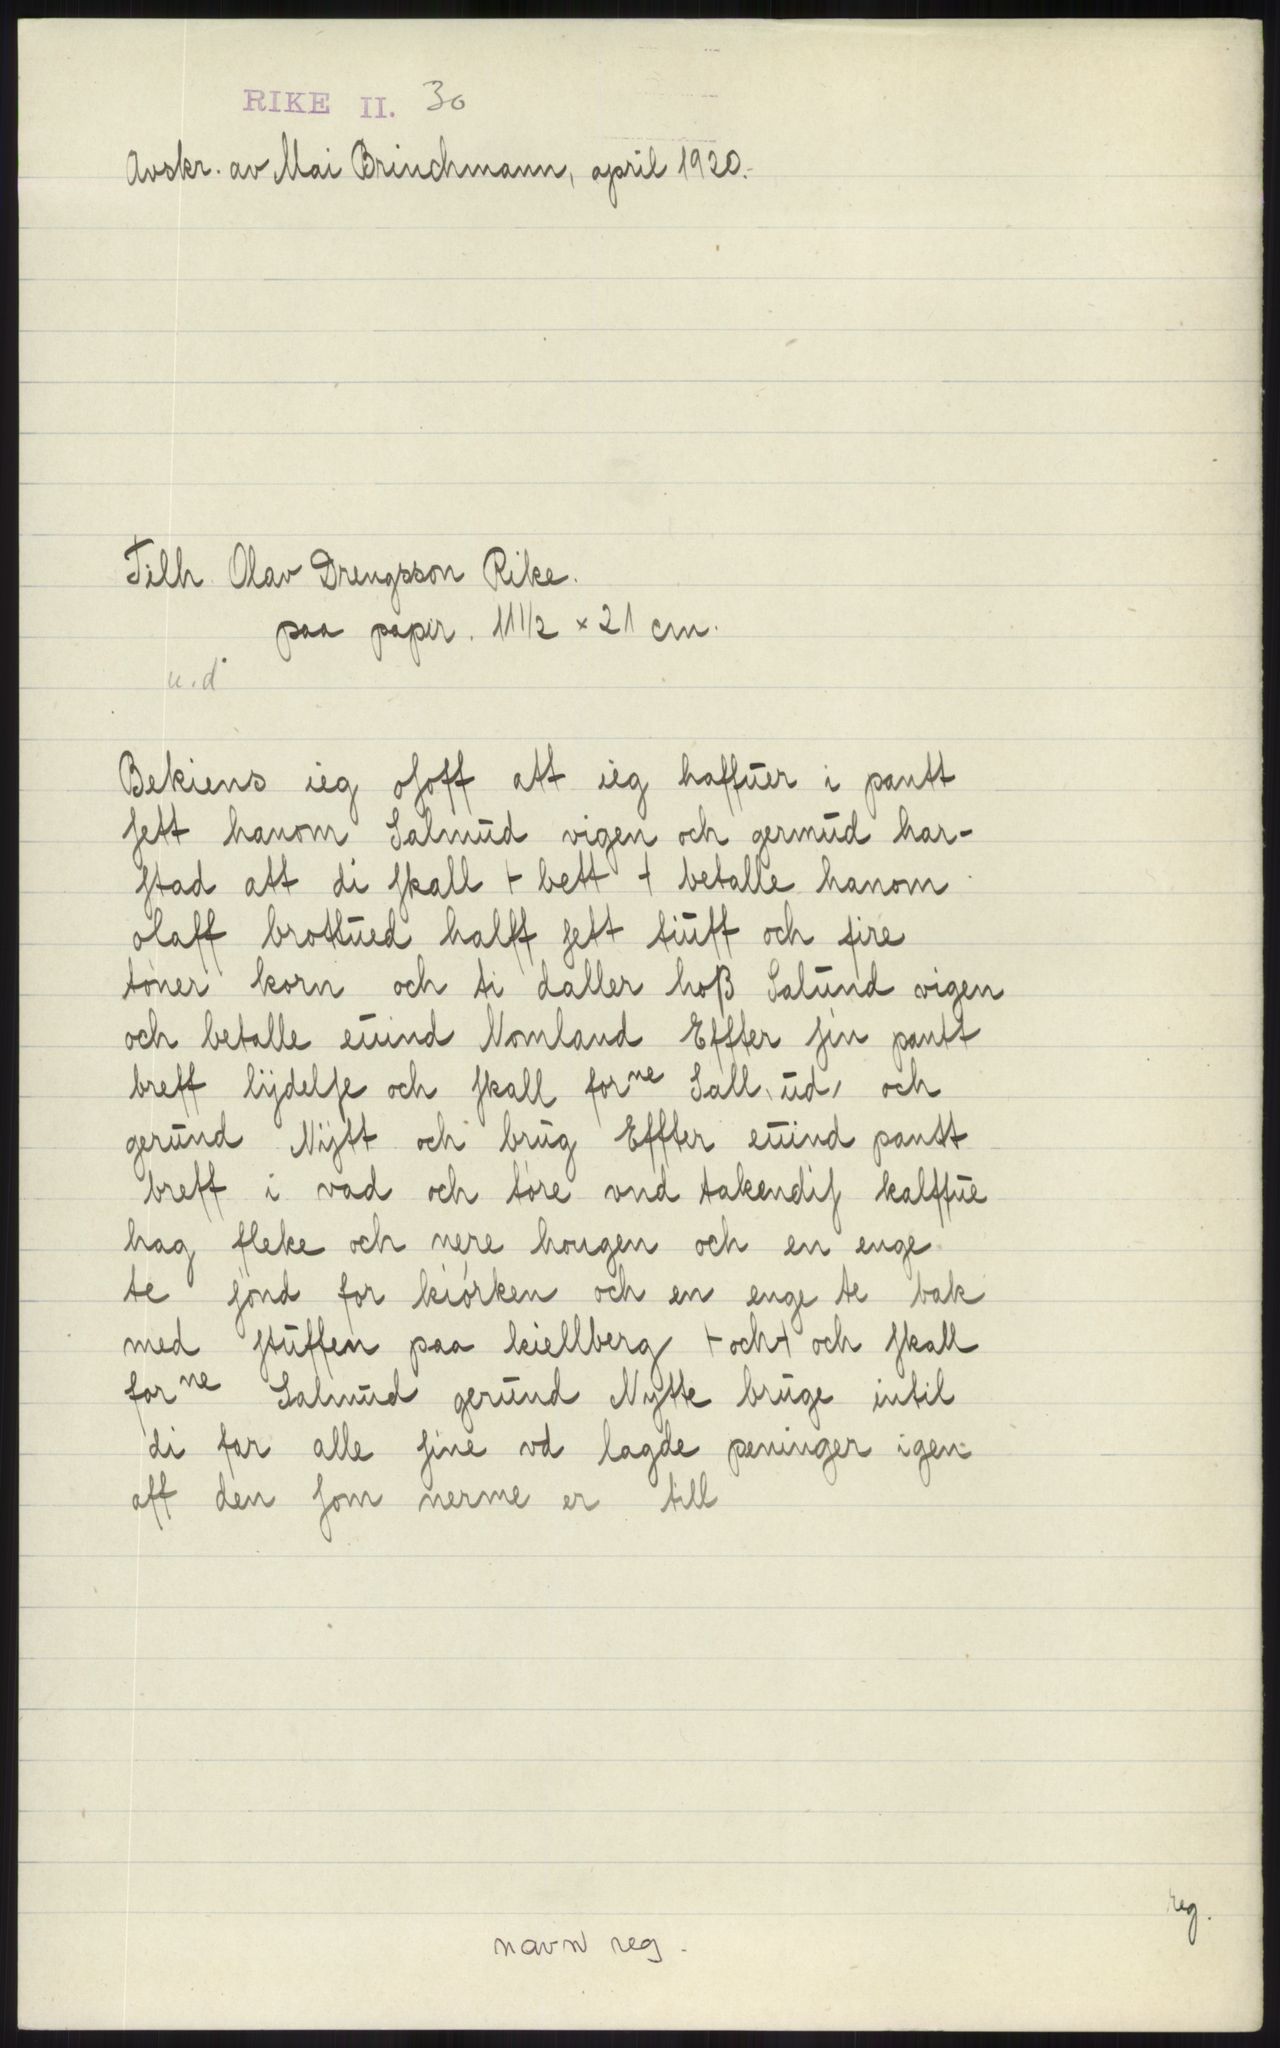 RIKE II. 30
Avskr. av Mai Brinchmann, april 1920.
Tilh. Olav Drengsson Rike.
paa papir. 11 1/2 × 21 cm.
u.d.
Bekiens ieg oloff att ieg haffuer i pantt
sett hanom Salmud vigen och germud har-
stad att di skall + bett + betalle hanom
olaff brottued halff sett tiuff och fire
tóner korn och ti daller hoß Salund vigen
och betalle euind Nomland Effter sin pantt
breff lijdelse och skall forne Sall,ud, och
gerund Nijtt och brug Effter euind pantt
breff i vad och tóre vnd takendis kalffue
hag fleke och nere hougen och en enge
te sónd for kiórken och en enge te bak
med stuffen paa kiellberg + och + och skall
forne Salmud gerund Nytte bruge intil
di far alle sine vd lagde peninger igen
aff den som nerme er till
reg.
navn reg.